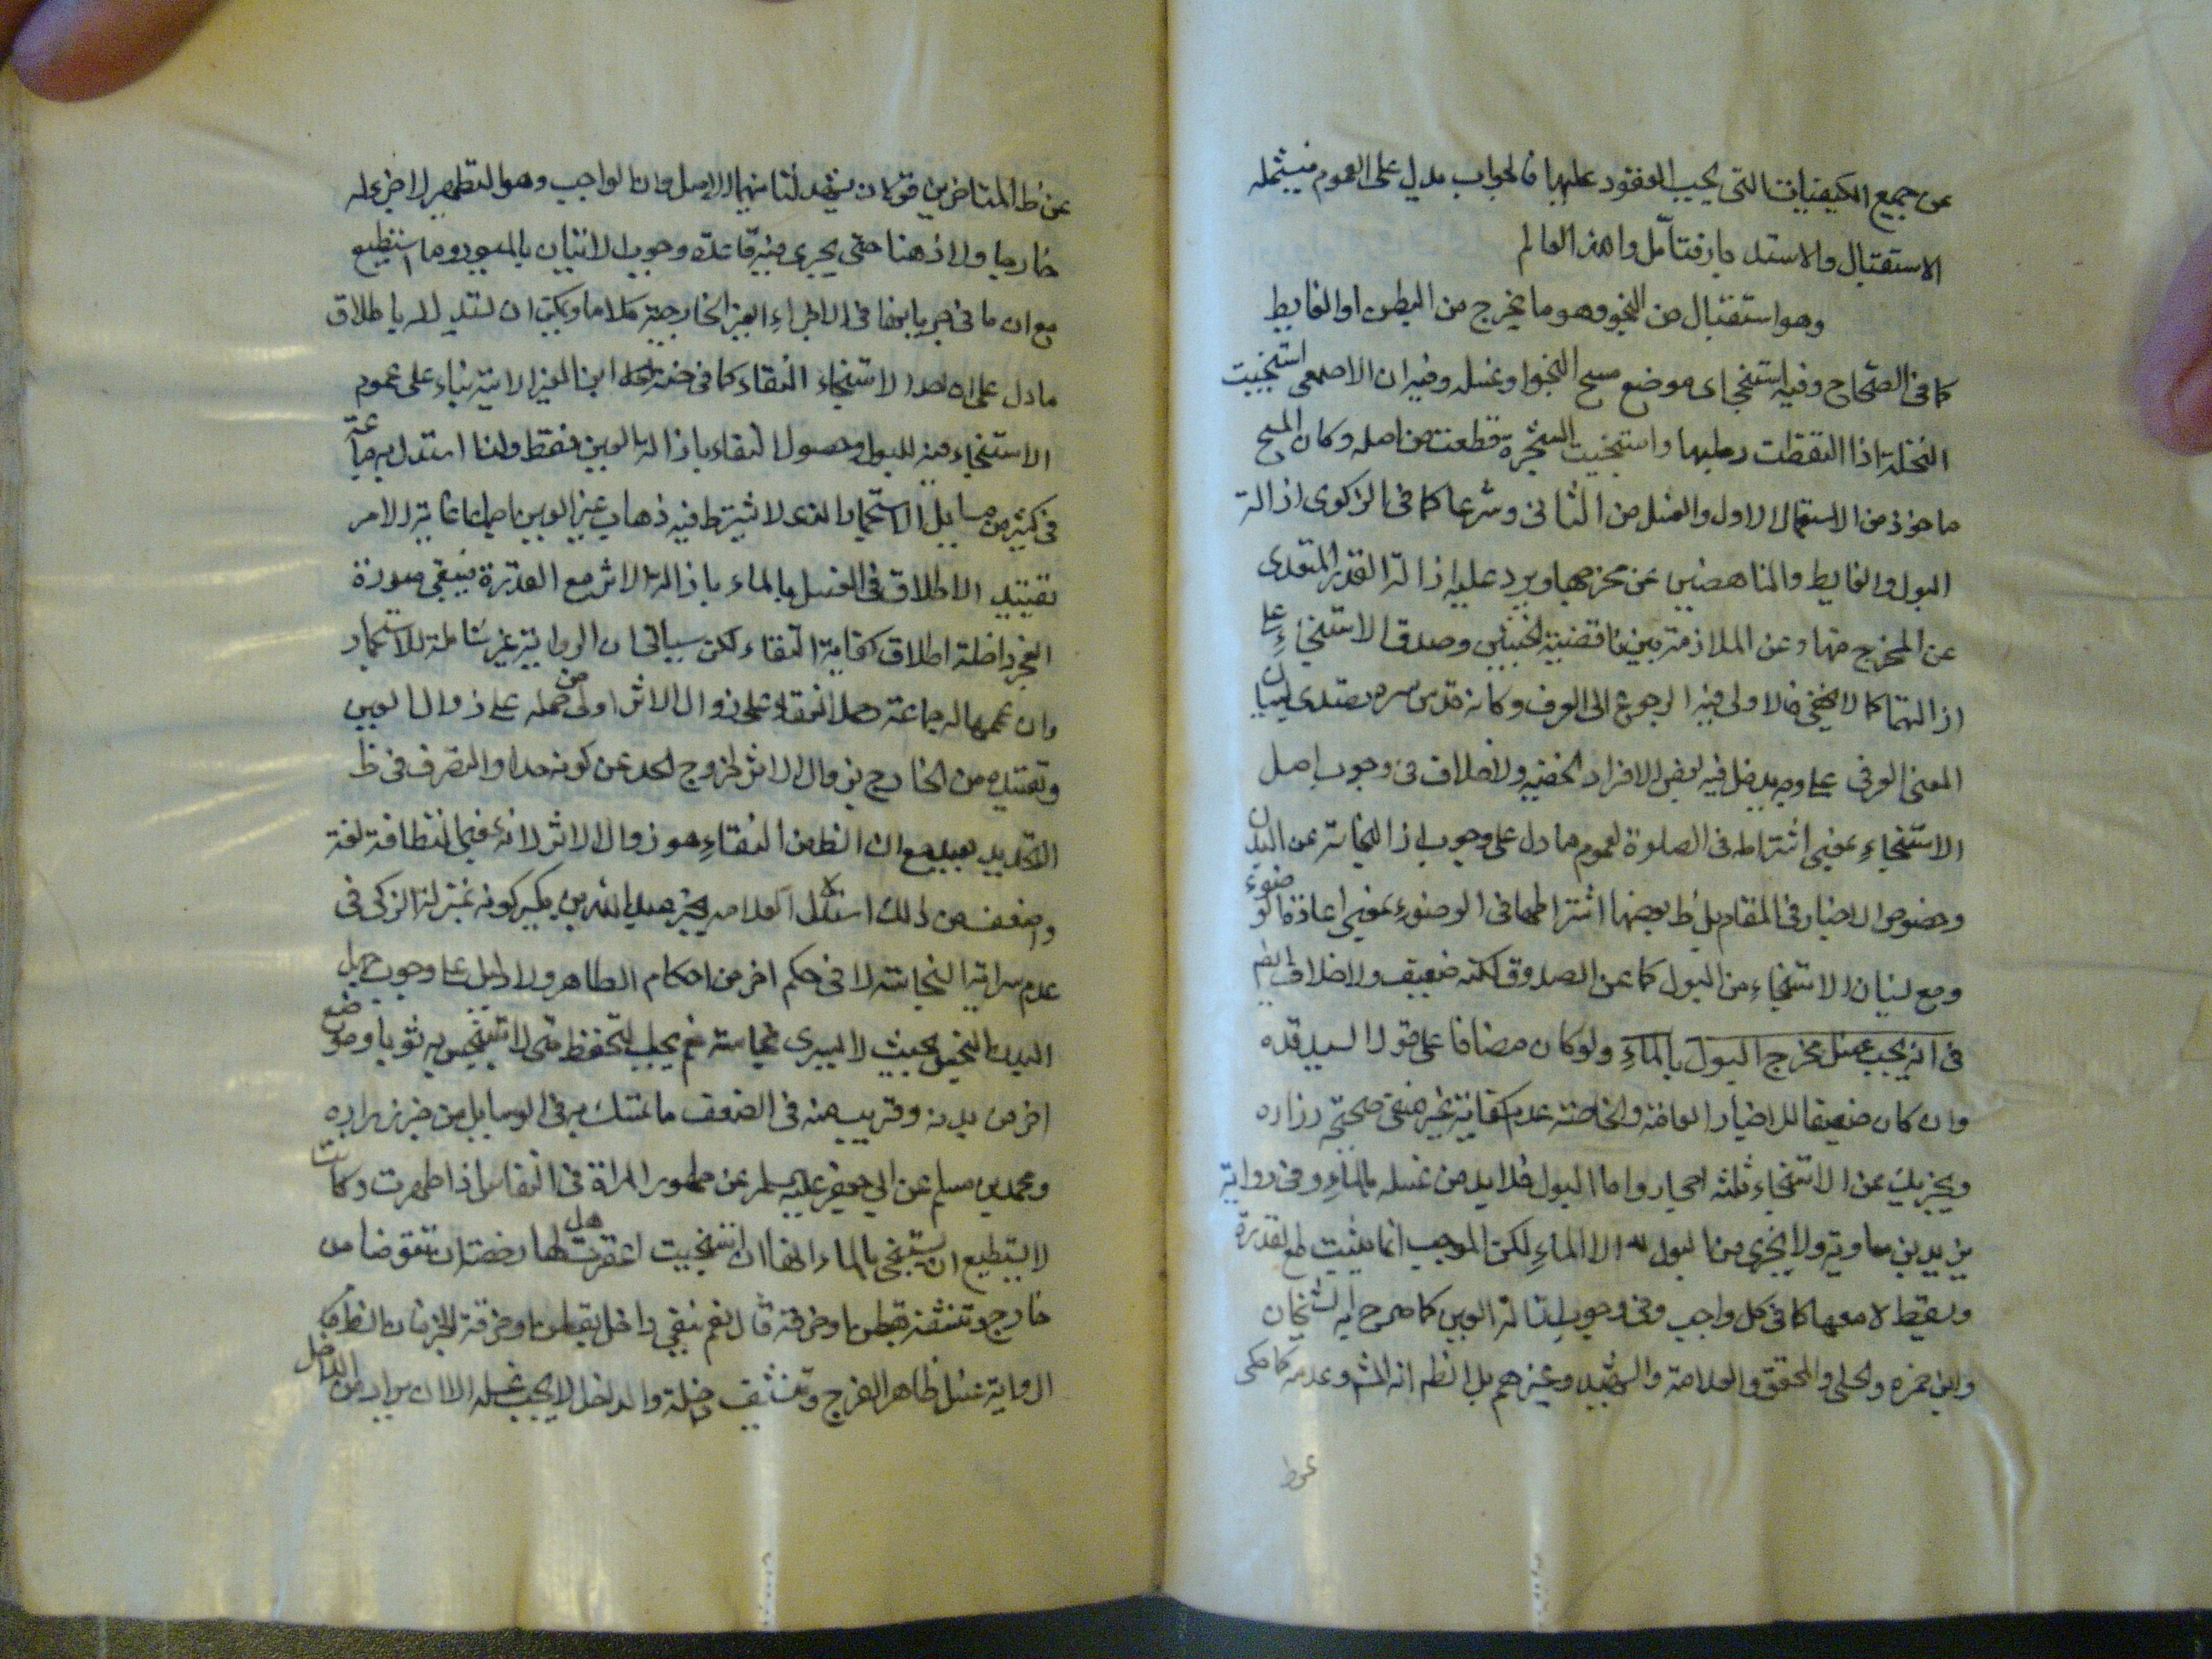 عن جميع الكيفيات التى يجب القعود عليها فالجواب يدل على العموم فيشمله
الاستقبال والاستدبار فتأمّل والله العالم
وهو استفعال من النجو وهو ما يخرج من البطن او الغايط
كما فى الصّحاح وفيه استنجى اى موضع مسح النجو او غسله وفيه ان الاصمعى استنجيت
النخلة اذا التقطت رطبها واستنجيت الشجرة قطعت من اصله وكان المسح
ماخوذ من الاستعمال الاول والغسل من الثانى وشرعا كما فى الزكوى ازالة
البول والغايط والناهضين عن مخرجهما ويرد عليه ازالة القدر المتعدى
عن المخرج منها وعن الملازمة بين وصدق الاستنجاء على
ازالتهما كما لا يخفى فالاولى فيه الرجوع الى العرف وكانه قدس سره بصدد بيان
المعنى العرفى على وجه يدخل فيه بعض الافراد الخفيه ولا خلاف فى وجوب اصل
الاستنجاء بمعنى اشتراطه فى الصلوة لعموم ما دل على وجوب ازالة النجاسة عن البدن
وخصوص الاخبار فى المقام بل ظ بعضها اشتراطها فى الوضوء بمعنى اعادة الوضوء
ومع نسيان الاستنجاء من البول كما عن الصدوق لكنه ضعيف ولا خلاف ايضم
فى انه يجب غسل مخرج البول بالماء ولو كان مضافا على قول السيد قده
وان كان ضعيفا للاخبار العامة والخاصة عدم كفاية غيره ففى صحيحة زراره
ويجزيك عن الاستنجاء ثلثه احجار واما البول فلا بد من غسله بالماء وفى رواية
بريد بن معاوية ولا يجزى من البول الا الماء لكن الوجوب انما يثبت مع القدرة
ويسقط لا معها كما فى كل واجب وفى وجوب ازالة العين كما صرح به الشيخان
وابن حمزه والحلى والمحقق والعلامة والشهيد وغيرهم بل الظم انه المش وعدمه كما حكى
عن ظ
عن ظ المتاخرين قولان يشهد لثانيهما الاصل وان الواجب وهو التطهير لا جزء له
خارجا ولا ذهنا حتى يجرى فيه قاعدة وجوب الاتيان بالميسور وما استطيع
مع ان ما فى جريانها فى الاجزاء الغير الخارجية كلاما ويمكن ان يستدل له باطلاق
ما دل على ان حد الاستنجاء النقاء كما فى حسنة ابن المغيرة الاتية بناء على عموم
الاستنجاء فيه للبول وحصول النقاء بازالة العين فقط ولذا استدل به جماعة
فى كثير من مسايل الاستجمار الذى لا يشترط فيه ذهاب غير العين غاية الامر
تقييد الاطلاق فى الغسل بالماء بازالة الاثر مع القدرة فيبقى صورة
العجز داخلة اطلاق كفاية النقاء لكن سياتى ان الرواية غير شاملة للاستجمار
وان عممها له جماعة حمل النقاء على زوال الاثر اولى من حمله على زوال العين
وتقييده من الخارج بزوال الاثر لخروج الحد عن كونه حدا والتصرف فى ظ
التحديد بعيد مع ان الظ من النقاء هو زوال الاثر لانه النظافة لغة
واضعف من ذلك استدل العلامه بخبر عبد الله بن بكير كونه بمنزلة الزكى فى
عدم سراية النجاسة لا فى حكم اخر من احكام الطاهر ولا دليل على وجوب
البدن النجس بحيث لا يسرى نجاسته نعم يجب التحفظ حتى لا يتنجس به ثوبا وموضع
اخر من بدنه وقريب منه فى الضعف ما تمسك به فى الوسايل من خبر زراره
ومحمد بن مسلم عن ابى جعفر عليه السلم عن طهور المراة فى النفاس اذا طهرت وكانت
لا يستطيع ان يستنجى بالماء انها ان استنجيت اعتقرت هل لها رخصة ان تتوضا من
خارج وتنشفه بقطن او خرقة قال نعم تنقى داخل بقطن او خرقة الخبر فان الظ من
الرواية غسل ظاهر الفرج وتنشيف داخله والداخل لا يجب غسله الا ان يراد من الداخل